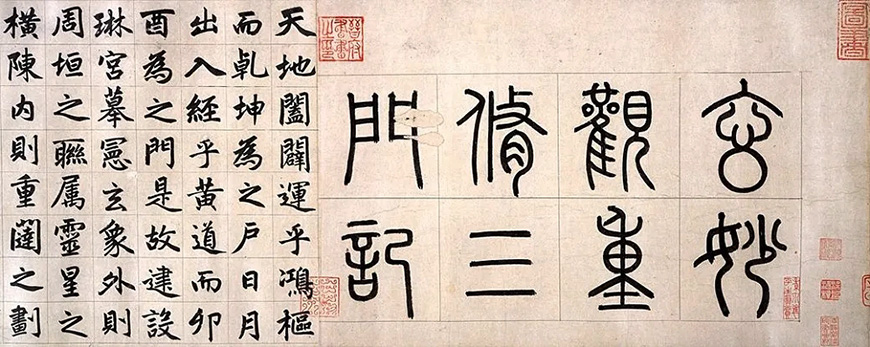 玄妙
觀重
脩三
門記
天地闔闢運乎鴻樞
而乹坤為之戶日月
出入經乎黃道而卯
酉為之門是故建設
琳宮摹憲玄象外則
周垣之聮属靈星之
橫陳内則重闥之劃